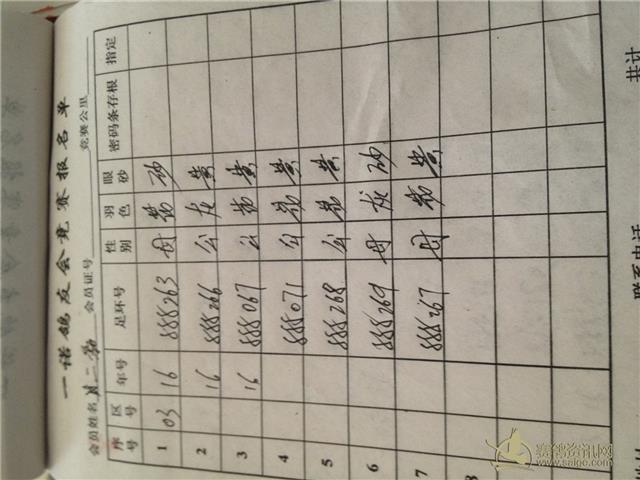 一诺鸽友会竞赛报名单
会员姓名 会员证号 竞赛公里
序号 区号 年号 足环号 性别 羽色 眼砂 密码条存根 指定
1 03 16 888263 母 砂
2 16 888266 公 灰 黄
3 16 888067 公 黄
4 888071 公 黄
5 888268 公 黄
6 888269 母 灰 砂
7 888267 母 黄
8
共计
联系电话
赛鸽资讯网
www.saige.com